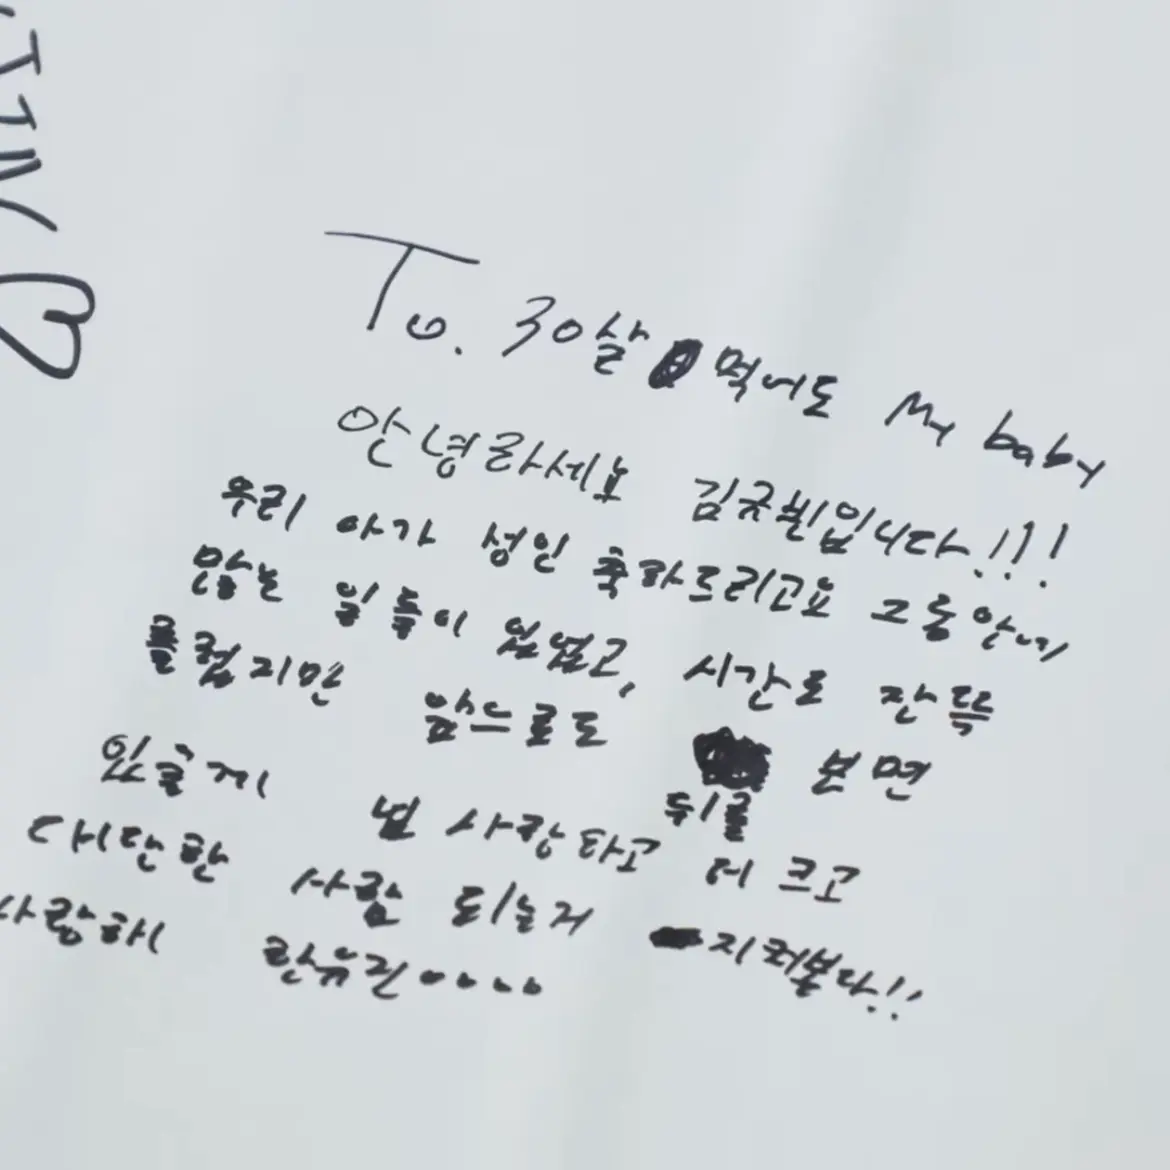 JIN
To. 30살 먹어도 My baby
안녕하세요 김규빈입니다!!!
우리 아가 성인 축하드리고요 그동안에
많은 일들이 있었고, 시간도 잔뜩
흘렀지만 앞으로도 보면
뒤를
있을게 넌 사랑하고 더 크고
대단한 사람 되는거 지켜볼다!!
사랑해 한유진아~~